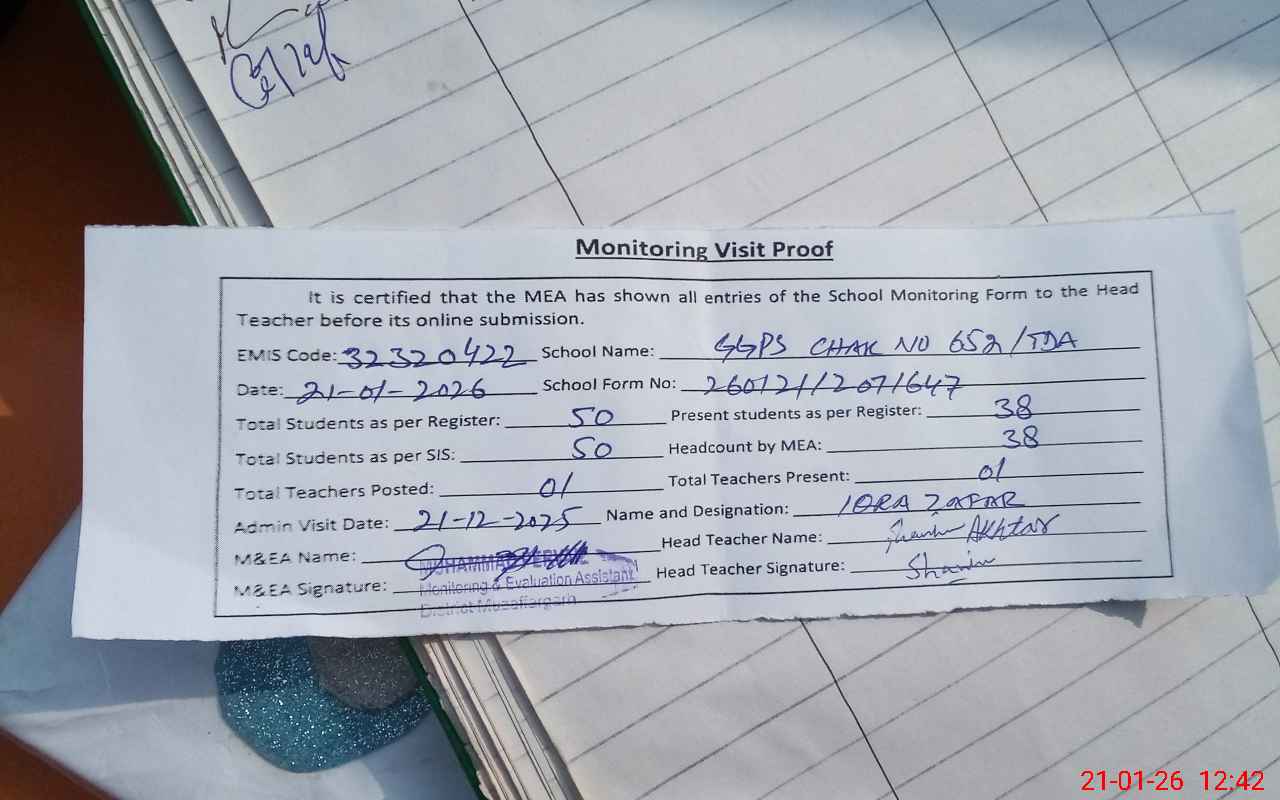 Monitoring Visit Proof
It is certified that the MEA has shown all entries of the School Monitoring Form to the Head
Teacher before its online submission.
EMIS Code: 32320422 School Name: GGPS CHAK NO 652/TDA
Date: 21-01-2026 School Form No:
Total Students as per Register: 50 Present students as per Register: 38
Total Students as per SIS: 50 Headcount by MEA: 38
Total Teachers Posted: 01 Total Teachers Present: 01
Admin Visit Date: 21-12-2025 Name and Designation: IQRA ZAFAR
M&EA Name: MUHAMMAD Head Teacher Name: Akhtar
M&EA Signature: Monitoring & Evaluation Assistant Head Teacher Signature:
District Muzaffargarh
21-01-26 12:42